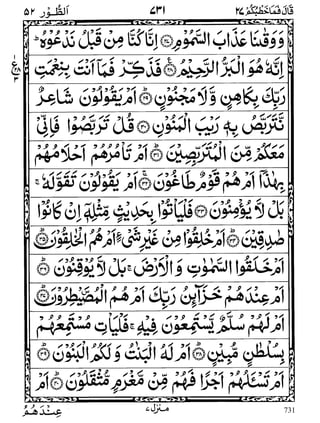 قَالَ فَمَا خَطْبُكُمْ ٢٧ ٧٣١ اَلطُّوْر ٥٢
وَوَقٰىنَا عَذَابَ السَّمُوْمِ ﴿٢٧﴾ اِنَّا كُنَّا مِنْ قَبْلُ نَدْعُوْهُ ؕ
اِنَّهٗ هُوَ الْبَرُّ الرَّحِيْمُ ﴿٢٨﴾ فَذَكِّرْ فَمَاۤ اَنْتَ بِنِعْمَتِ
رَبِّكَ بِكَاهِنٍ وَّلَا مَجْنُوْنٍ ﴿٢٩﴾ اَمْ يَقُوْلُوْنَ شَاعِرٌ
نَّتَرَبَّصُ بِهٖ رَيْبَ الْمَنُوْنِ ﴿٣٠﴾ قُلْ تَرَبَّصُوْا فَاِنِّىْ
مَعَكُمْ مِّنَ الْمُتَرَبِّصِيْنَ ﴿٣١﴾ اَمْ تَاْمُرُهُمْ اَحْلَامُهُمْ
بِهٰذَاۤ اَمْ هُمْ قَوْمٌ طَاغُوْنَ ﴿٣٢﴾ اَمْ يَقُوْلُوْنَ تَقَوَّلَهٗ ۚ
بَلْ لَّا يُؤْمِنُوْنَ ﴿٣٣﴾ فَلْيَاْتُوْا بِحَدِيْثٍ مِّثْلِهٖۤ اِنْ كَانُوْا
صٰدِقِيْنَ ﴿٣٤﴾ اَمْ خُلِقُوْا مِنْ غَيْرِ شَىْءٍ اَمْ هُمُ الْخٰلِقُوْنَ ﴿٣٥﴾
اَمْ خَلَقُوا السَّمٰوٰتِ وَالْاَرْضَ ۚ بَلْ لَّا يُوْقِنُوْنَ ﴿٣٦﴾
اَمْ عِنْدَهُمْ خَزَآئِنُ رَبِّكَ اَمْ هُمُ الْمُصَۜيْطِرُوْنَ ﴿٣٧﴾
اَمْ لَهُمْ سُلَّمٌ يَّسْتَمِعُوْنَ فِيْهِ ۚ فَلْيَاْتِ مُسْتَمِعُهُمْ
بِسُلْطٰنٍ مُّبِيْنٍ ﴿٣٨﴾ اَمْ لَهُ الْبَنٰتُ وَلَكُمُ الْبَنُوْنَ ﴿٣٩﴾
اَمْ تَسْئَلُهُمْ اَجْرًا فَهُمْ مِّنْ مَّغْرَمٍ مُّثْقَلُوْنَ ﴿٤٠﴾ اَمْ
731 منزل٧ عِنْدَهُمُ